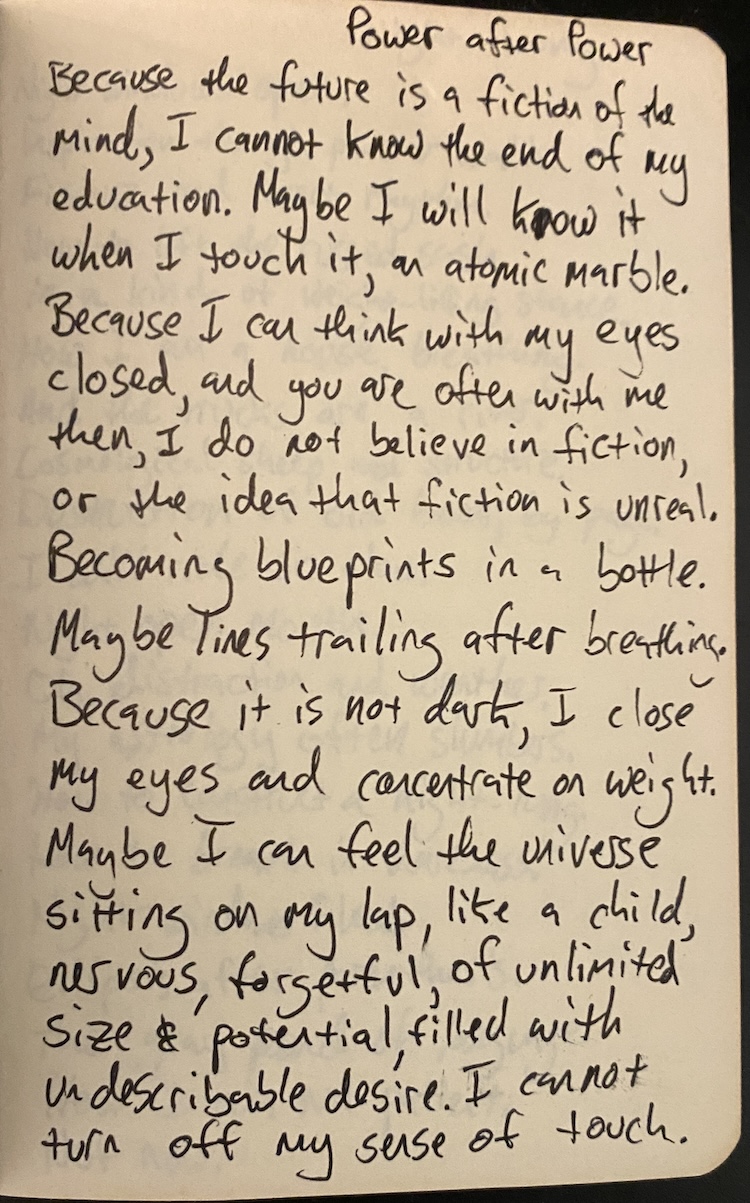 Power after Power
Because the future is a fiction of the
mind, I cannot know the end of my
education. Maybe I will know it
when I touch it, an atomic marble.
Because I can think with my eyes
closed, and you are often with me
then, I do not believe in fiction,
or the idea that fiction is unreal.
Becoming blueprints in a bottle.
Maybe lines trailing after breathing.
Because it is not dark, I close
my eyes and concentrate on weight.
Maybe I can feel the universe
sitting on my lap, like a child,
nervous, forgetful, of unlimited
size & potential, filled with
undescribable desire. I cannot
turn off my sense of touch.